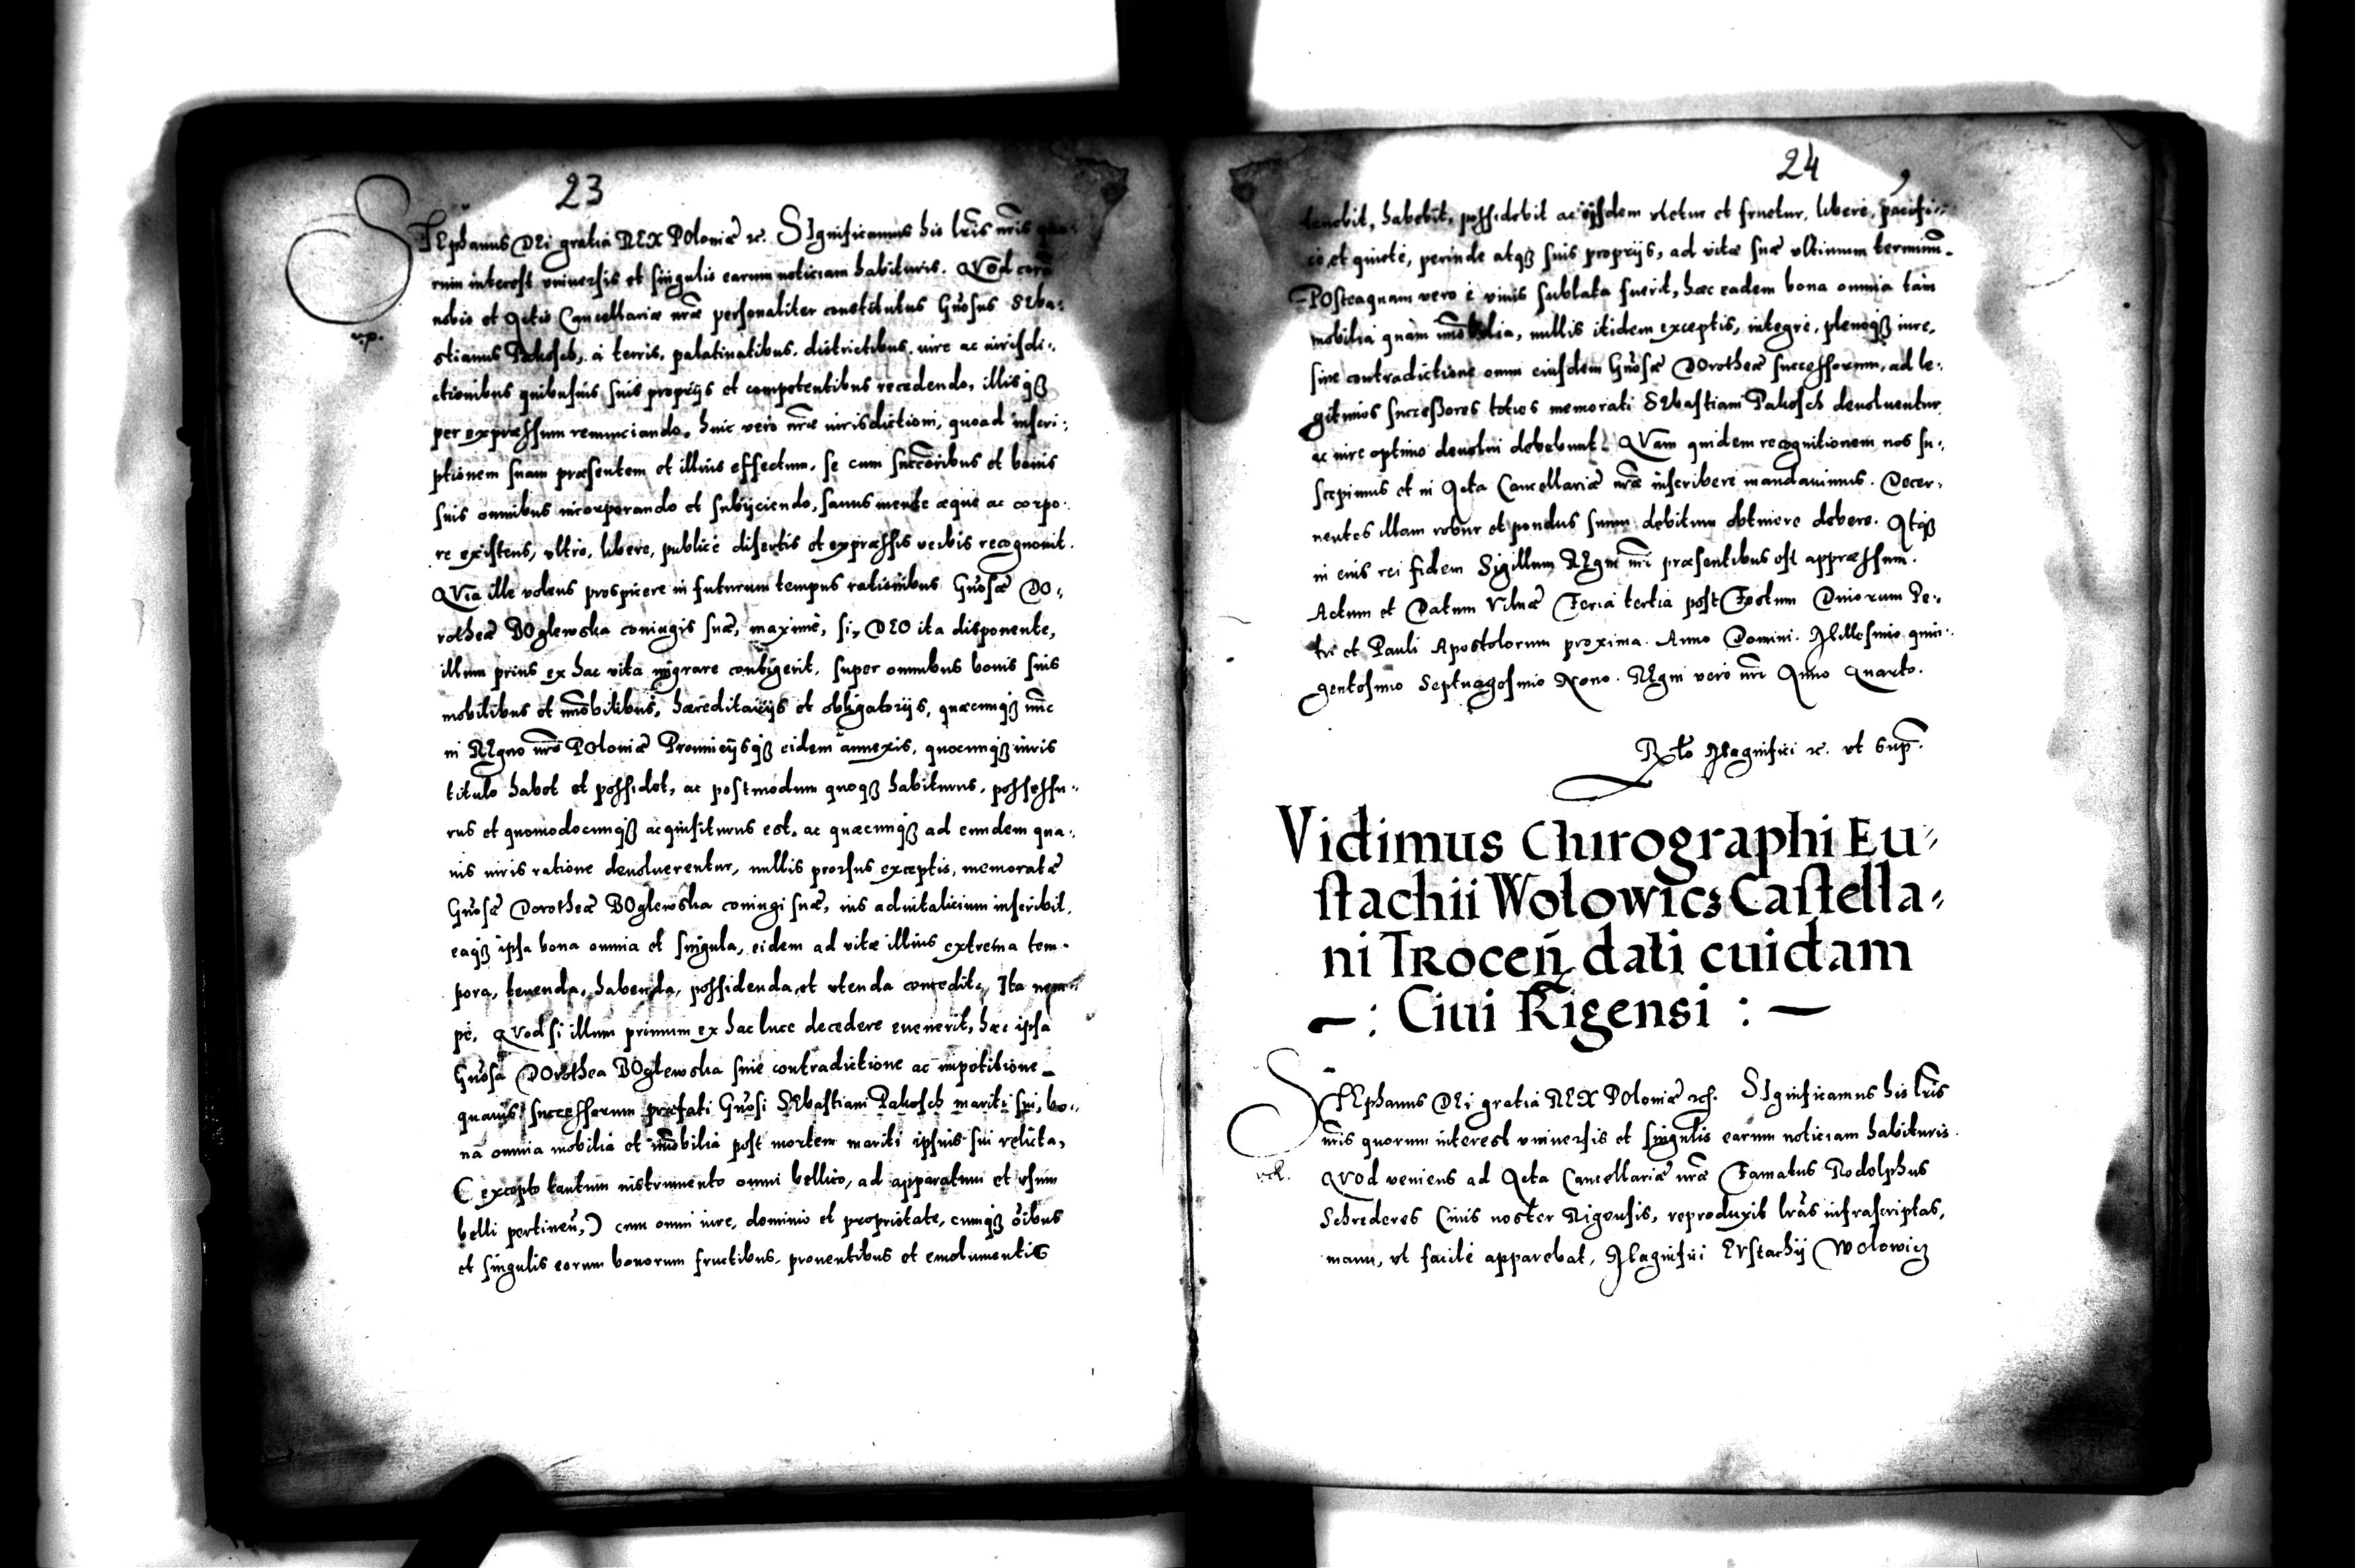 23
STEphanus DEi gratia REX POloniæ ꝛc. SIgnificamus his lr̃is nr̃is quo-
rum interest vniuersis et singulis earum noticiam habituris. QVod corã
nobis et Actis Cancellariæ nr̃æ personaliter constitutus Gñosus SEba-
stianus Pakosch, à terris, palatinatibus, districtibus, iure ac iurisdi-
ctionibus quibusuis suis proprijs et competentibus recedendo, illisq̃ꝫ
per expræssum renunciando, huic vero nr̃æ iurisdictioni, quoad inscri-
ptionem suam præsentem et illius effectum, se cum succc̃oribus et bonis
suis omnibus incorporando et subijciendo, sanus mente æque ac corpo-
re existens, vltro, libere, publicè disertis et expræssis verbis recognouit.
QVia ille volens prospicere in futurum tempus rationibus Gñosæ DO-
rotheæ BOglewska coniugis suæ, maximè, si, DEO ita disponente,
illum prius ex hac vita migrare contigerit, super omnibus bonis suis
mobilibus et im̃obilibus, hæreditarijs et obligatorijs, quæcunqꝫ nunc
in REgno nr̃o POloniæ Prouincijsqꝫ eidem annexis, quocunqꝫ iuris
titulo habet et possidet, ac postmodum quoqꝫ habiturus, possessu-
rus et quomodocunqꝫ acquisiturus est, ac quæcunqꝫ ad eundem qua-
uis iuris ratione deuoluerentur, nullis prorsus exceptis, memoratæ
Gñosæ Dorotheæ BOglewska coniugi suæ, ius aduitalicium inscribit,
eaqꝫ ipsa bona omnia et singula, eidem ad vitæ illius extrema tem-
pora, tenenda, habenda, possidenda, et vtenda concedit, Ita nem-
pè, QVod si illum primum ex hac luce decedere euenerit, hæc ipsa
Gñosa DOrothea BOglewska sine contradictione ac impetitione
quauis successorum præfati Gñosi SEbastiani Pakosch mariti sui, bo-
na omnia mobilia et im̃obilia post mortem mariti ipsius sui relicta,
(excepto tantum instrumento omni bellico, ad apparatum et vsum
belli pertineñ,) cum omni iure, dominio et proprietate, cumqꝫ õibus
et singulis eorum bonorum fructibus, prouentibus et emolumentis
24
tenebit, habebit, possidebit ac ijsdem vtetur et fruetur, liberè, pacifi-
cè et quietè, perinde atqꝫ suis proprijs, ad vitæ suæ vltimum terminũ.
POsteaquam vero è viuis sublata fuerit, hæc eadem bona omnia tàm
mobilia quàm im̃obilia, nullis itidem exceptis, integrè, plenoqꝫ iure,
sine contradictione omni eiusdem Gñosæ DOrotheæ successorum, ad le-
gitimos successores toties memorati SEbastiani Pakosch deuoluentur
ac iure optimo deuolui debebunt. QVam quidem recognitionem nos su-
scepimus et in Acta Cancellariæ nr̃æ inscribere mandauimus. Decer-
nentes illam robur et pondus suum debitum obtinere debere. Atqꝫ
in eius rei fidem Sigillum REgni nr̃i præsentibus est appræssum.
Actum et Datum Vilnæ Feria tertia post Festum Diuorum Pe-
tri et Pauli Apostolorum proxima. Anno Domini. Millesimo quin-
gentesimo Septuagesimo Nono. REgni vero nr̃i Anno Quarto.
Rl̃to Magnifici ꝛc. vt Sup̃.
Vidimus Chirographi Eu-
stachii Wolowicz Castella-
ni Troceñ dati cuidam
–: Ciui Rigensi :–
STEphanus DEi gratia REX POloniæ ꝛc. SIgnificamus his lr̃is
nr̃is quorum interest vniuersis et singulis earum noticiam habituris.
QVod veniens ad Acta Cancellariæ nr̃æ Famatus Rodolphus
Schrederes Ciuis noster Rigensis, reproduxit lr̃as infrascriptas,
manu, vt facilè apparebat, Magnifici EVstachij Wolowicz